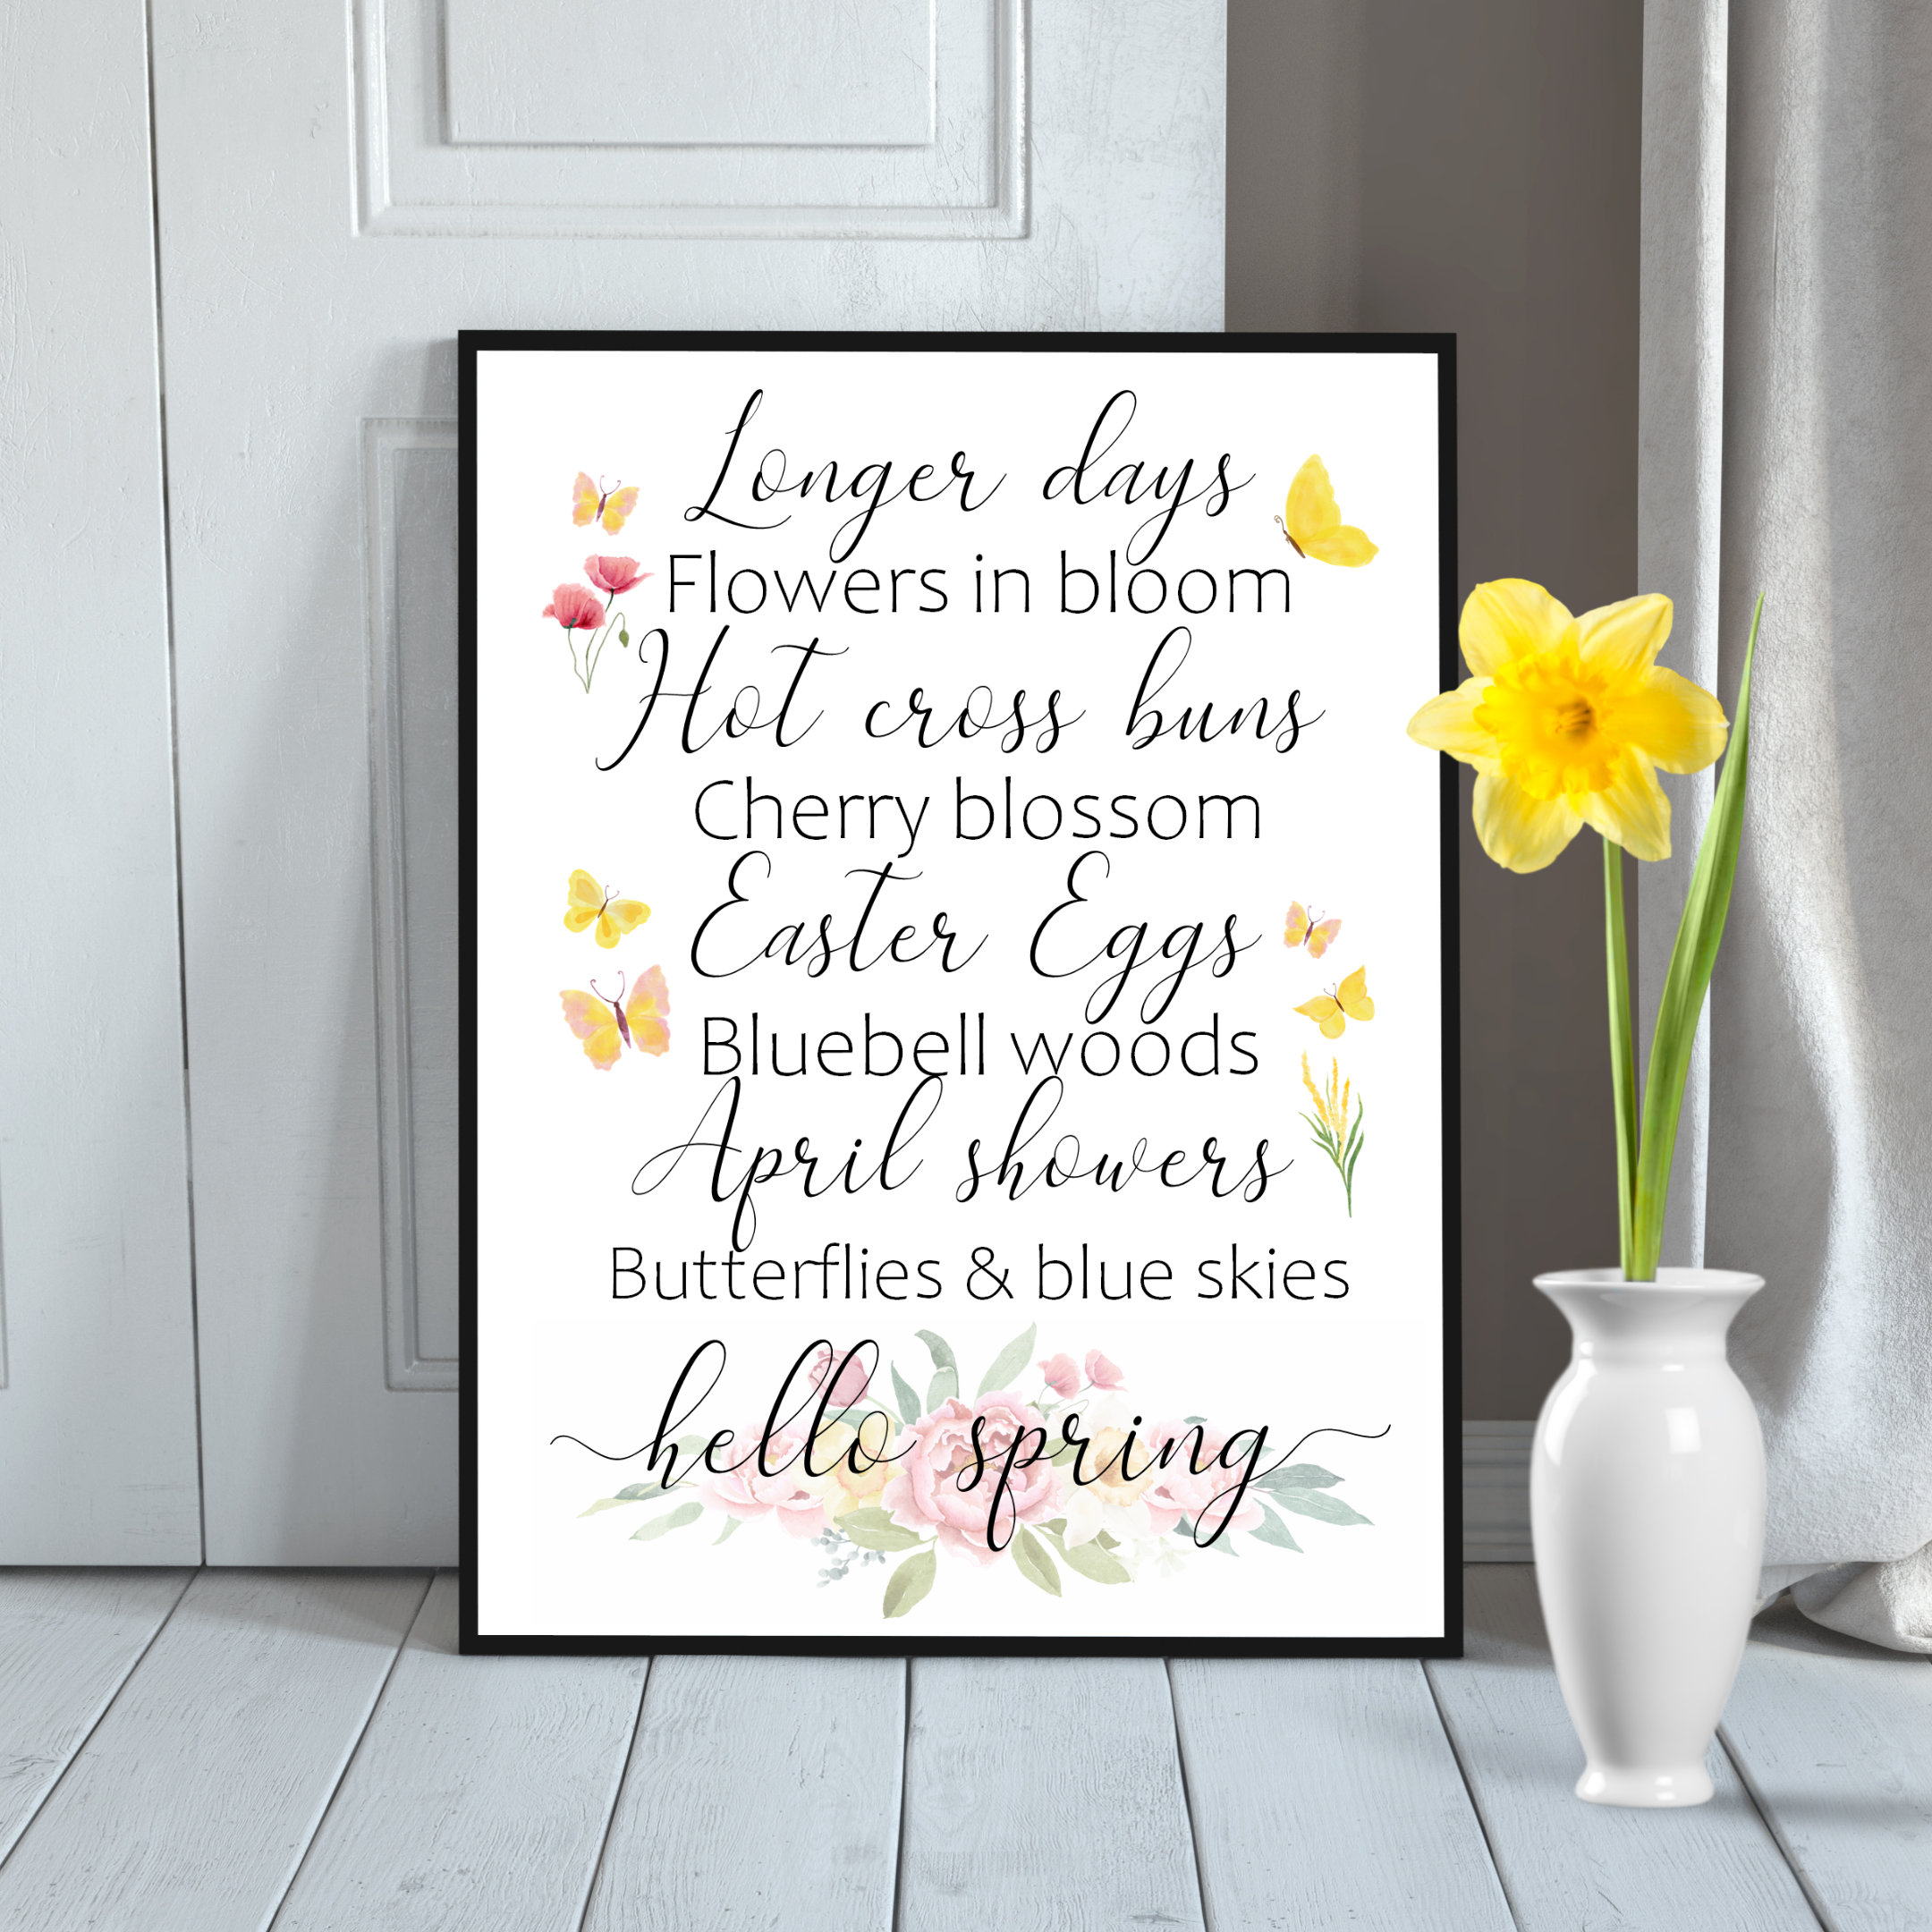 Longer days
Flowers in bloom
Hot cross buns
Cherry blossom
Easter Eggs
Bluebell woods
April showers
Butterflies & blue skies
hello spring